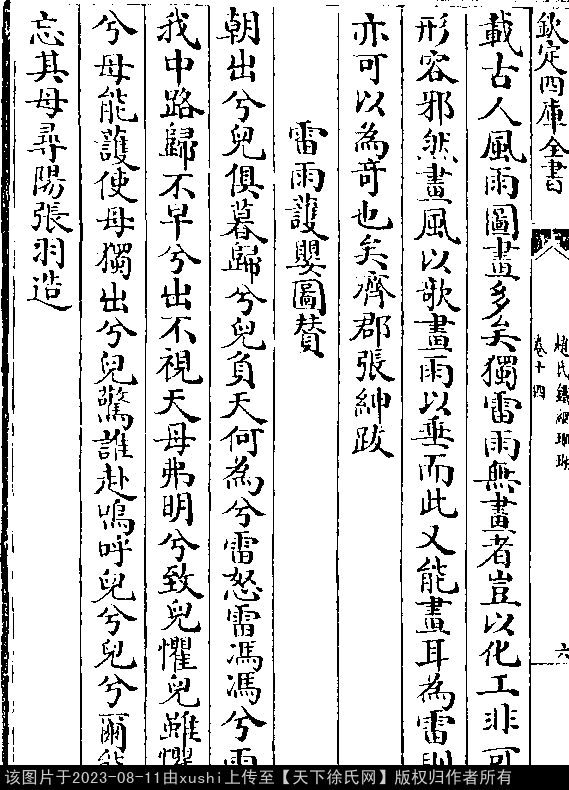 欽定四庫全書
卷十四
六
載古人風雨圖畫多矣獨雷雨無畫者豈以化工非可
形容邪然畫風以歌畫雨以垂而此又能畫耳為雷則
亦可以為奇也矣齊郡張紳跋
雷雨護嬰圖贊
朝出兮兒俱暮歸兮兒負天何為兮雷怒雷馮馮兮雨
我中路歸不早兮出不視天母弗明兮致兒懼兒雖懼
兮母能護使母獨出兮兒驚誰赴嗚呼兒兮兒兮爾能
忘其母尋陽張羽造
该图片于2023-08-11由xushi上传至【天下徐氏网】版权归作者所有